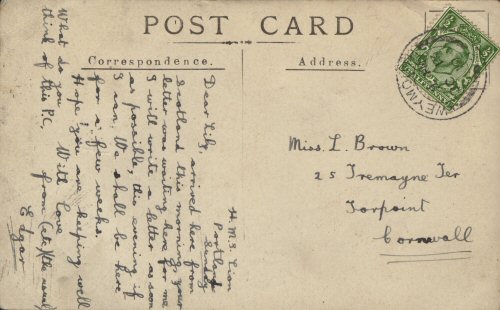 POST CARD
Correspondence.
Address.
H.M.S. Lion
Portland
Sunday
Dear Lily, arrived here from
Scotland this morning, your
letter was waiting here for me,
I will write a letter as soon
as possible, this evening if
I can. We shall be here
for a few weeks.
Hope you are keeping well
With Love
from (etc) (the usual)
Edgar
What do you
think of this P.C.
Miss. L. Brown
25 Tremayne Ter
Torpoint
Cornwall
WEYMO